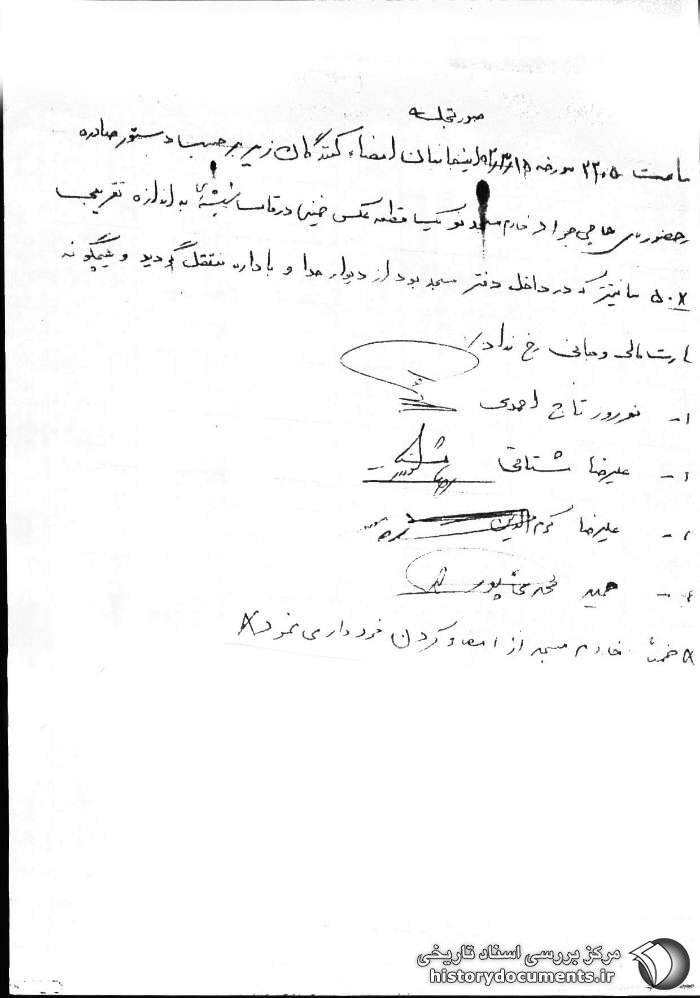 صورتجلسه
ساعت ۲۲۰۵ مورخه اینجانبان امضاء کنندگان زیر بر حسب دستور صادره
حضور حاجی جواد خادم مسجد نو یک قطعه عکس خمینی در قاب شیشه‌ای به اندازه تقریباً
سانتیمتر که در داخل دفتر مسجد بود از دیوار جدا و به اداره منتقل گردید و هیچگونه
مالی و جانی رخ نداد
۱- نوروز تاج احمدی
علیرضا
علیرضا کرم الدین
۴- حمید
ضمناً خادم مسجد از امضاء کردن خودداری نمود
مرکز بررسی اسناد تاریخی
historydocuments.ir